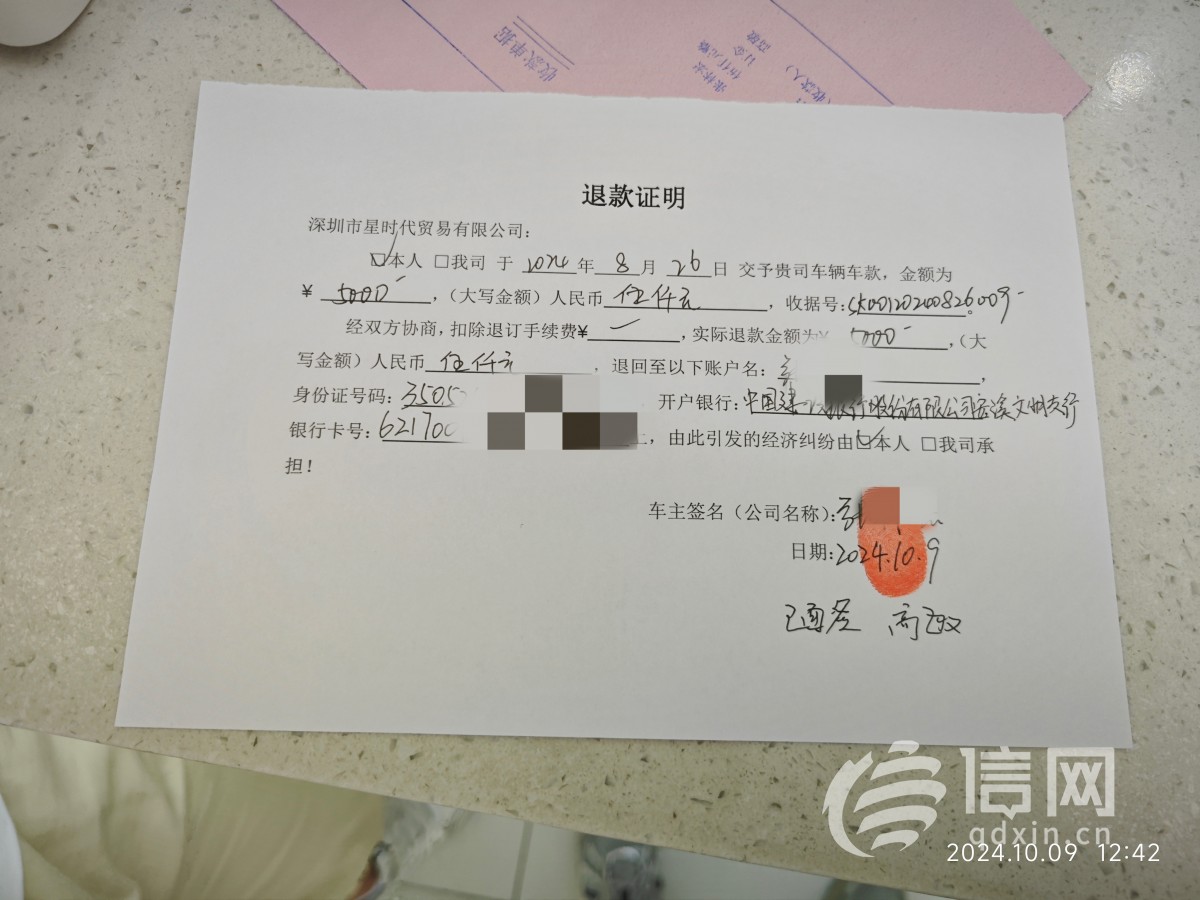 收款单据
退款证明
深圳市星时代贸易有限公司：
☑本人 □我司 于 2024 年 8 月 26 日 交予贵司车辆车款，金额为
¥ 5000 ，（大写金额）人民币 伍仟元 ，收据号：
经双方协商，扣除退订手续费¥ — ，实际退款金额为¥ 5000 ，（大
写金额）人民币 伍仟元 ，退回至以下账户名：
身份证号码：3505 开户银行：中国建 银行股份有限公司安溪文州支行
银行卡号：621700 上，由此引发的经济纠纷由☑本人 □我司承
担！
车主签名（公司名称）：
日期：2024.10.9
高敏
信网
qdxin.cn
2024.10.09 12:42